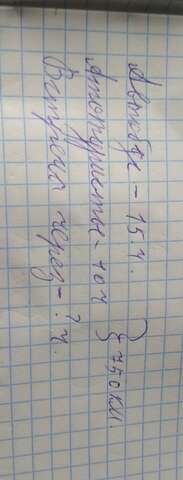 Автобус – 15 ч.
Автотуристы – 10 ч } 750 км.
Встреча через – ? ч.